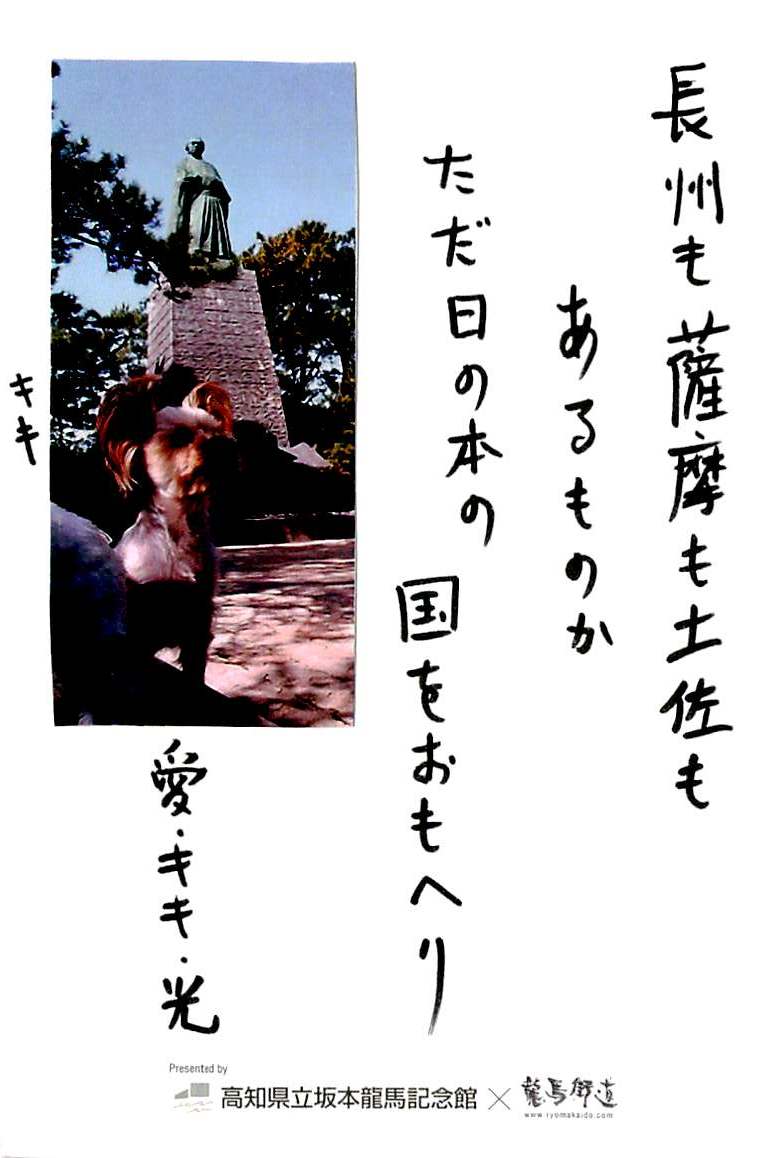 長州も薩摩も土佐も
あるものか
ただ日の本の
国をおもへり
キキ
愛・キキ・光
Presented by
高知県立坂本龍馬記念館×龍馬街道
www.ryomakaido.com